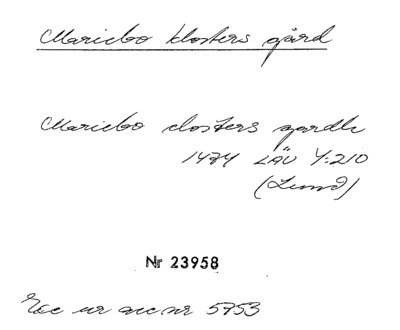 Mariebo klosters gård
Mariebo closters gardh
1474 LÄU Y:210
(Lund)
Nr 23958
Exc ur acc nr 5753